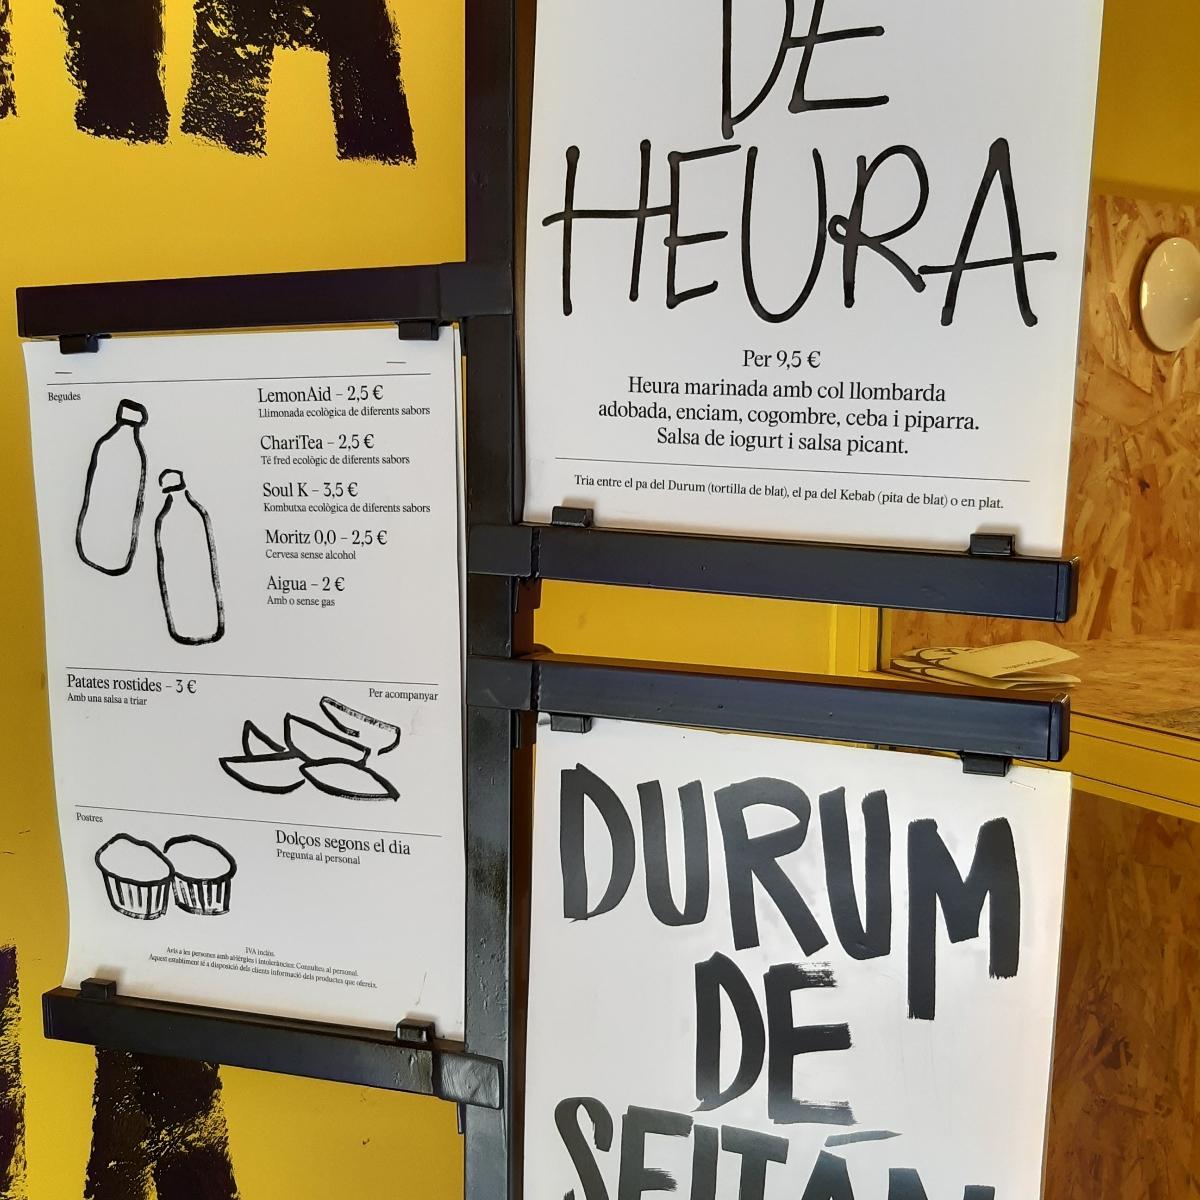 Begudes
LemonAid – 2,5 €
Llimonada ecològica de diferents sabors
ChariTea – 2,5 €
Té fred ecològic de diferents sabors
Soul K – 3,5 €
Kombutxa ecològica de diferents sabors
Moritz 0,0 – 2,5 €
Cervesa sense alcohol
Aigua – 2 €
Amb o sense gas
Patates rostides – 3 €
Amb una salsa a triar
Per acompanyar
Postres
Dolços segons el dia
Pregunta al personal
IVA inclòs.
Avís a les persones amb al·lèrgies i intoleràncies: Consulteu al personal.
Aquest establiment té a disposició dels clients informació dels productes que ofereix.
DE
HEURA
Per 9,5 €
Heura marinada amb col llombarda
adobada, enciam, cogombre, ceba i piparra.
Salsa de iogurt i salsa picant.
Tria entre el pa del Durum (tortilla de blat), el pa del Kebab (pita de blat) o en plat.
DURUM
DE
SEITÁN